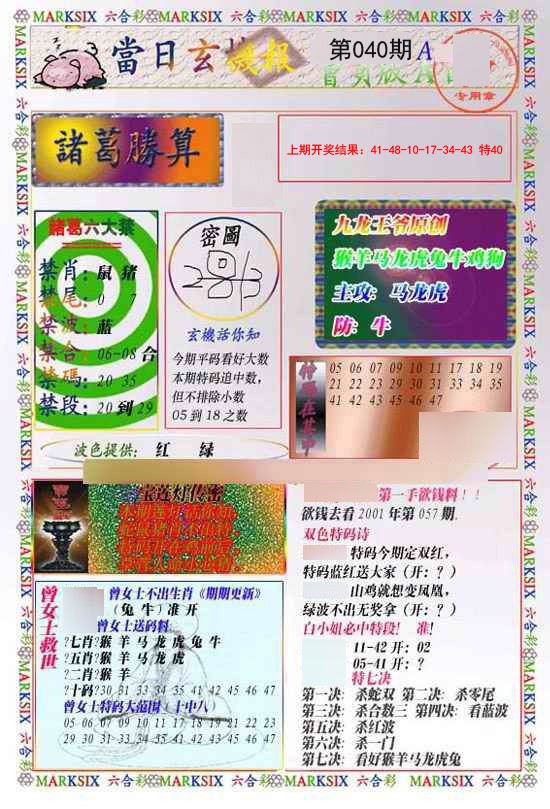 MARKSIX 六合彩 MARKSIX 六合彩 MARKSIX 六合彩 MARKSIX 六合彩 MARKSIX
當日玄機報
第040期 A
专用章
諸葛勝算
上期开奖结果：41-48-10-17-34-43 特40
諸葛六大禁
禁肖：鼠 猪
禁尾：0 7
禁波：蓝
禁合：06-08 合
禁碼：20 35
禁段：20 到 29
密圖
玄機活你知
今期平码看好大数
本期特码追中数，
但不排除小数
05 到 18 之数
九龙王爷原创
猴羊马龙虎兔牛鸡狗
主攻：马龙虎
防：牛
05 06 07 09 10 11 17 18 19
21 22 23 29 30 31 33 34 35
41 42 43 45 46 47
波色提供： 红 绿
宝莲灯传密
第一手欲钱料！！
欲钱去看 2001 年第 057 期.
双色特码诗
特码今期定双红，
特码蓝红送大家（开：？）
山鸡就想变凤凰，
绿波不出无奖拿（开：？）
白小姐必中特段！ 准！
11-42 开：02
05-41 开：？
特七决
第一决：杀蛇双 第二决：杀零尾
第三决：杀合数三 第四决：看蓝波
第五决：杀红波
第六决：杀一门
第七决：看好猴羊马龙虎兔
曾女士救世
曾女士不出生肖《期期更新》
（兔 牛）准 开
曾女士送码料
?七肖?猴 羊 马 龙 虎 兔 牛
?五肖?猴 羊 马 龙 虎
?二肖?猴 羊
?十码?30 31 33 34 35 41 42 45 46 47
曾女士特码大范围（十中八）
05 06 07 09 10 11 17 18 19 21 22 23
29 30 31 33 34 35 41 42 43 45 46 47
MARKSIX 六合彩 MARKSIX 六合彩 MARKSIX 六合彩 MARKSIX 六合彩 MARKSIX